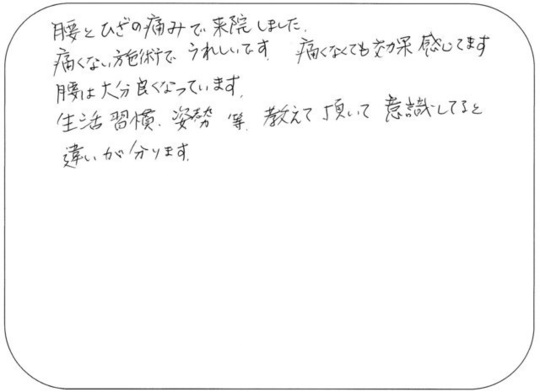 腰とひざの痛みで来院しました.
痛くない施術で うれしいです 痛くなくても効果感じてます
腰は大分良くなっています.
生活習慣. 姿勢 等. 教えて頂いて 意識してると
違いが分ります.